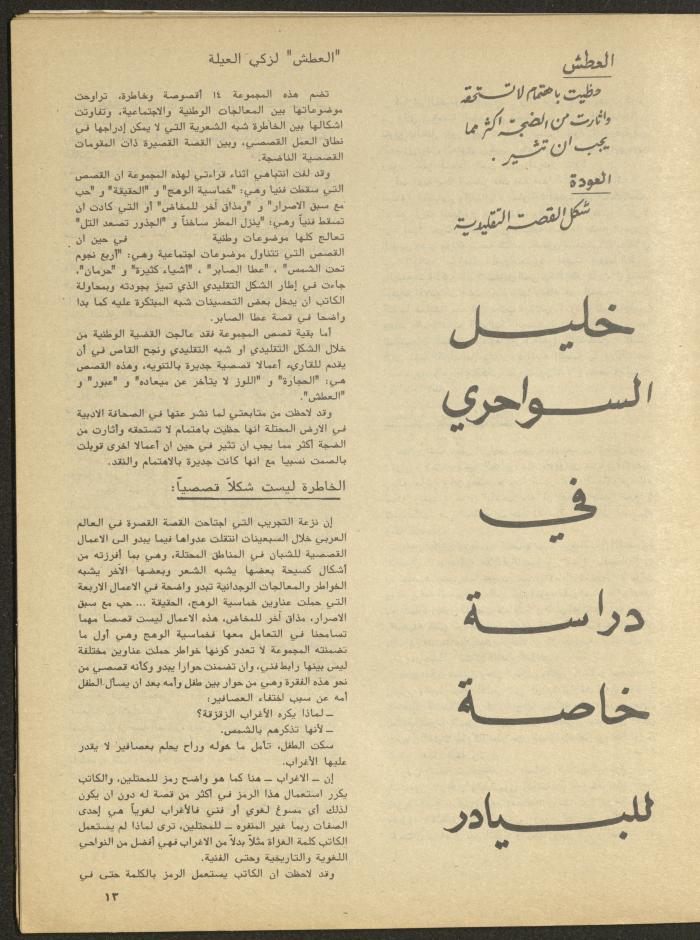 العطش
حظيت باهتمام لا تستحقه
واثارت من الضجة اكثر مما
يجب ان تثير .
العودة
شكل القصة التقليدية
خليل
السواحري
في
دراسة
خاصة
للبيادر
"العطش" لزكي العيلة
تضم هذه المجموعة ١٤ أقصوصة وخاطرة، تراوحت
موضوعاتها بين المعالجات الوطنية والاجتماعية، وتفاوتت
اشكالها بين الخاطرة شبه الشعرية التي لا يمكن إدراجها في
نطاق العمل القصصي، وبين القصة القصيرة ذات المقومات
القصصية الناضجة.
وقد لفت انتباهي اثناء قراءتي لهذه المجموعة ان القصص
التي سقطت فنيا وهي: "خماسية الوهج" و "الحقيقة" و "حب
مع سبق الاصرار" و "ومذاق آخر للمخاض" أو التي كادت ان
تسقط فنياً وهي: "ينزل المطر ساخناً و "الجذور تصعد التل"
تعالج كلها موضوعات وطنية في حين ان
القصص التي تتناول موضوعات اجتماعية وهي: "أربع نجوم
تحت الشمس" ، "عطا الصابر" ، "أشياء كثيرة" و "حرمان"،
جاءت في إطار الشكل التقليدي الذي تميز بجودته وبمحاولة
الكاتب ان يدخل بعض التحسينات شبه المبتكرة عليه كما بدا
واضحا في قصة عطا الصابر.
أما بقية قصص المجموعة فقد عالجت القضية الوطنية من
خلال الشكل التقليدي او شبه التقليدي ونجح القاص في أن
يقدم للقارىء أعمالا قصصية جديرة بالتنويه، وهذه القصص
هي: "الحجارة" و "اللوز لا يتأخر عن ميعاده" و "عبور" و
"العطش".
وقد لاحظت من متابعتي لما نشر عنها في الصحافة الادبية
في الارض المحتلة انها حظيت باهتمام لا تستحقه وأثارت من
الضجة أكثر مما يجب ان تثير في حين ان أعمالا اخرى قوبلت
بالصمت نسبيا مع انها كانت جديرة بالاهتمام والنقد.
الخاطرة ليست شكلاً قصصياً:
إن نزعة التجريب التي اجتاحت القصة القصرة في العالم
العربي خلال السبعينات انتقلت عدواها فيما يبدو الى الاعمال
القصصية للشبان في المناطق المحتلة، وهي بما أفرزته من
أشكال كسيحة بعضها يشبه الشعر وبعضها الآخر يشبه
الخواطر والمعالجات الوجدانية تبدو واضحة في الاعمال الاربعة
التي حملت عناوين خماسية الوهج، الحقيقة ... حب مع سبق
الاصرار، مذاق آخر للمخاض، هذه الاعمال ليست قصصا مهما
تسامحنا في التعامل معها فخماسية الوهج وهي أول ما
تضمنته المجموعة لا تعدو كونها خواطر حملت عناوين مختلفة
ليس بينها رابط فني، وان تضمنت حوارا يبدو وكأنه قصصي من
نحو هذه الفقرة وهي من حوار بين طفل وأمه بعد ان يسأل الطفل
أمه عن سبب اختفاء العصافير:
ــ لماذا يكره الأغراب الزقزقة؟
ــ لأنها تذكرهم بالشمس.
سكت الطفل، تأمل ما حوله وراح يحلم بعصافير لا يقدر
عليها الأغراب.
إن ــ الاغراب ــ هنا كما هو واضح رمز للمحتلين، والكاتب
يكرر استعمال هذا الرمز في أكثر من قصة له دون ان يكون
لذلك أي مسوغ لغوي أو فني فالأغراب لغوياً هي إحدى
الصفات ربما غير المنفره ــ للمحتلين، ترى لماذا لم يستعمل
الكاتب كلمة الغزاة مثلاً بدلاً من الاغراب فهي أفضل من النواحي
اللغوية والتاريخية وحتى الفنية.
وقد لاحظت ان الكاتب يستعمل الرمز بالكلمة حتى في
١٣